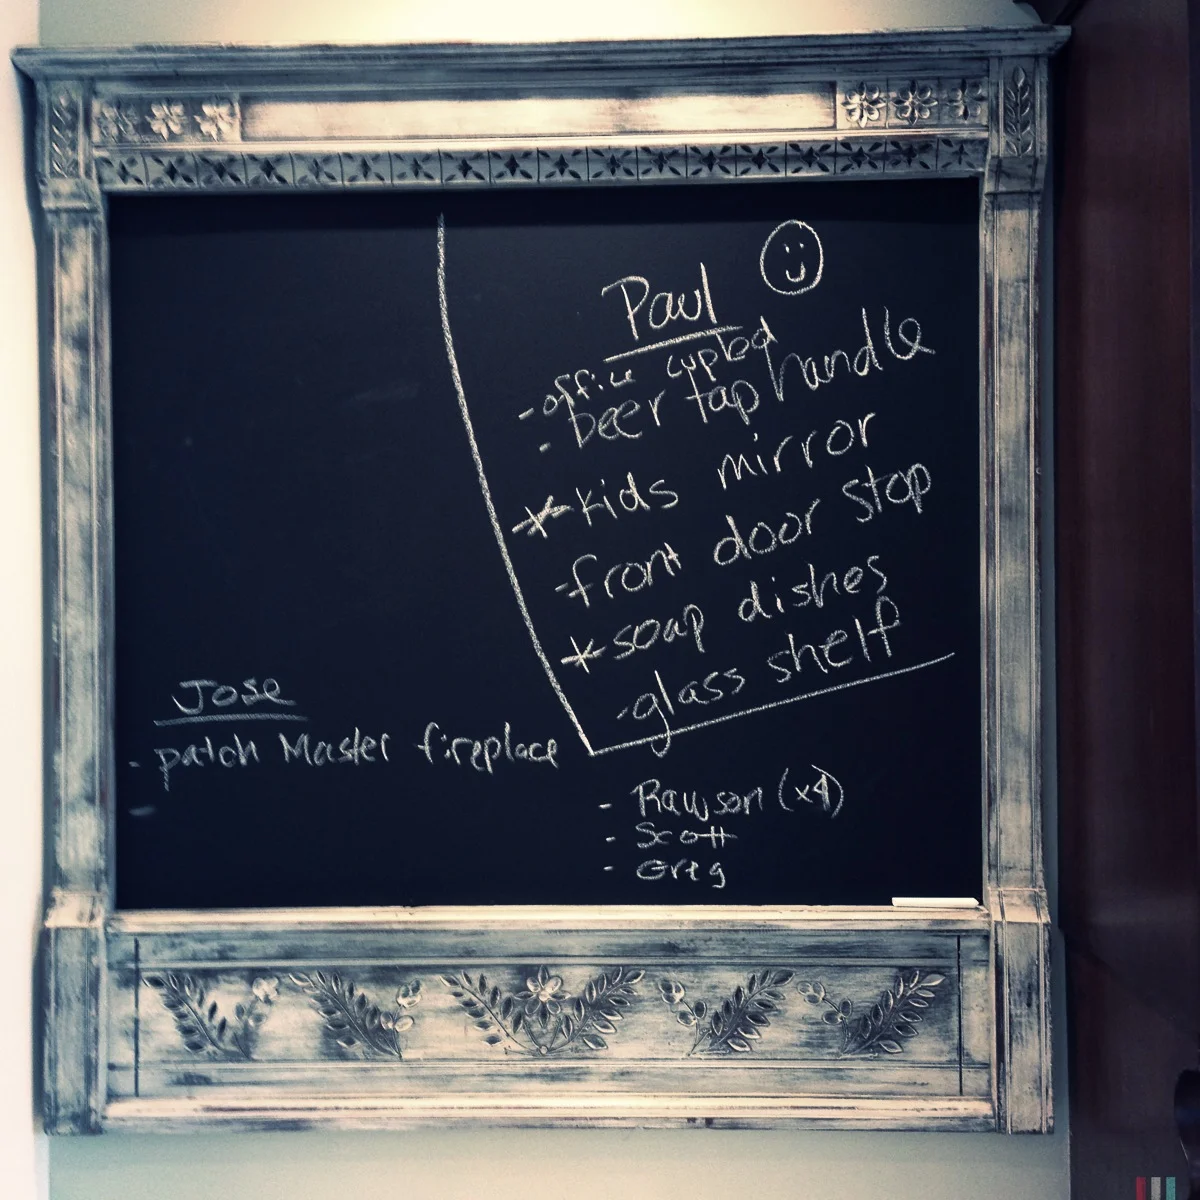 Paul
- office cupbod
- beer tap handle
* kids mirror
- front door stop
* soap dishes
- glass shelf
Jose
- patch Master fireplace
-
- Rawson (x4)
- Scott
- Greg